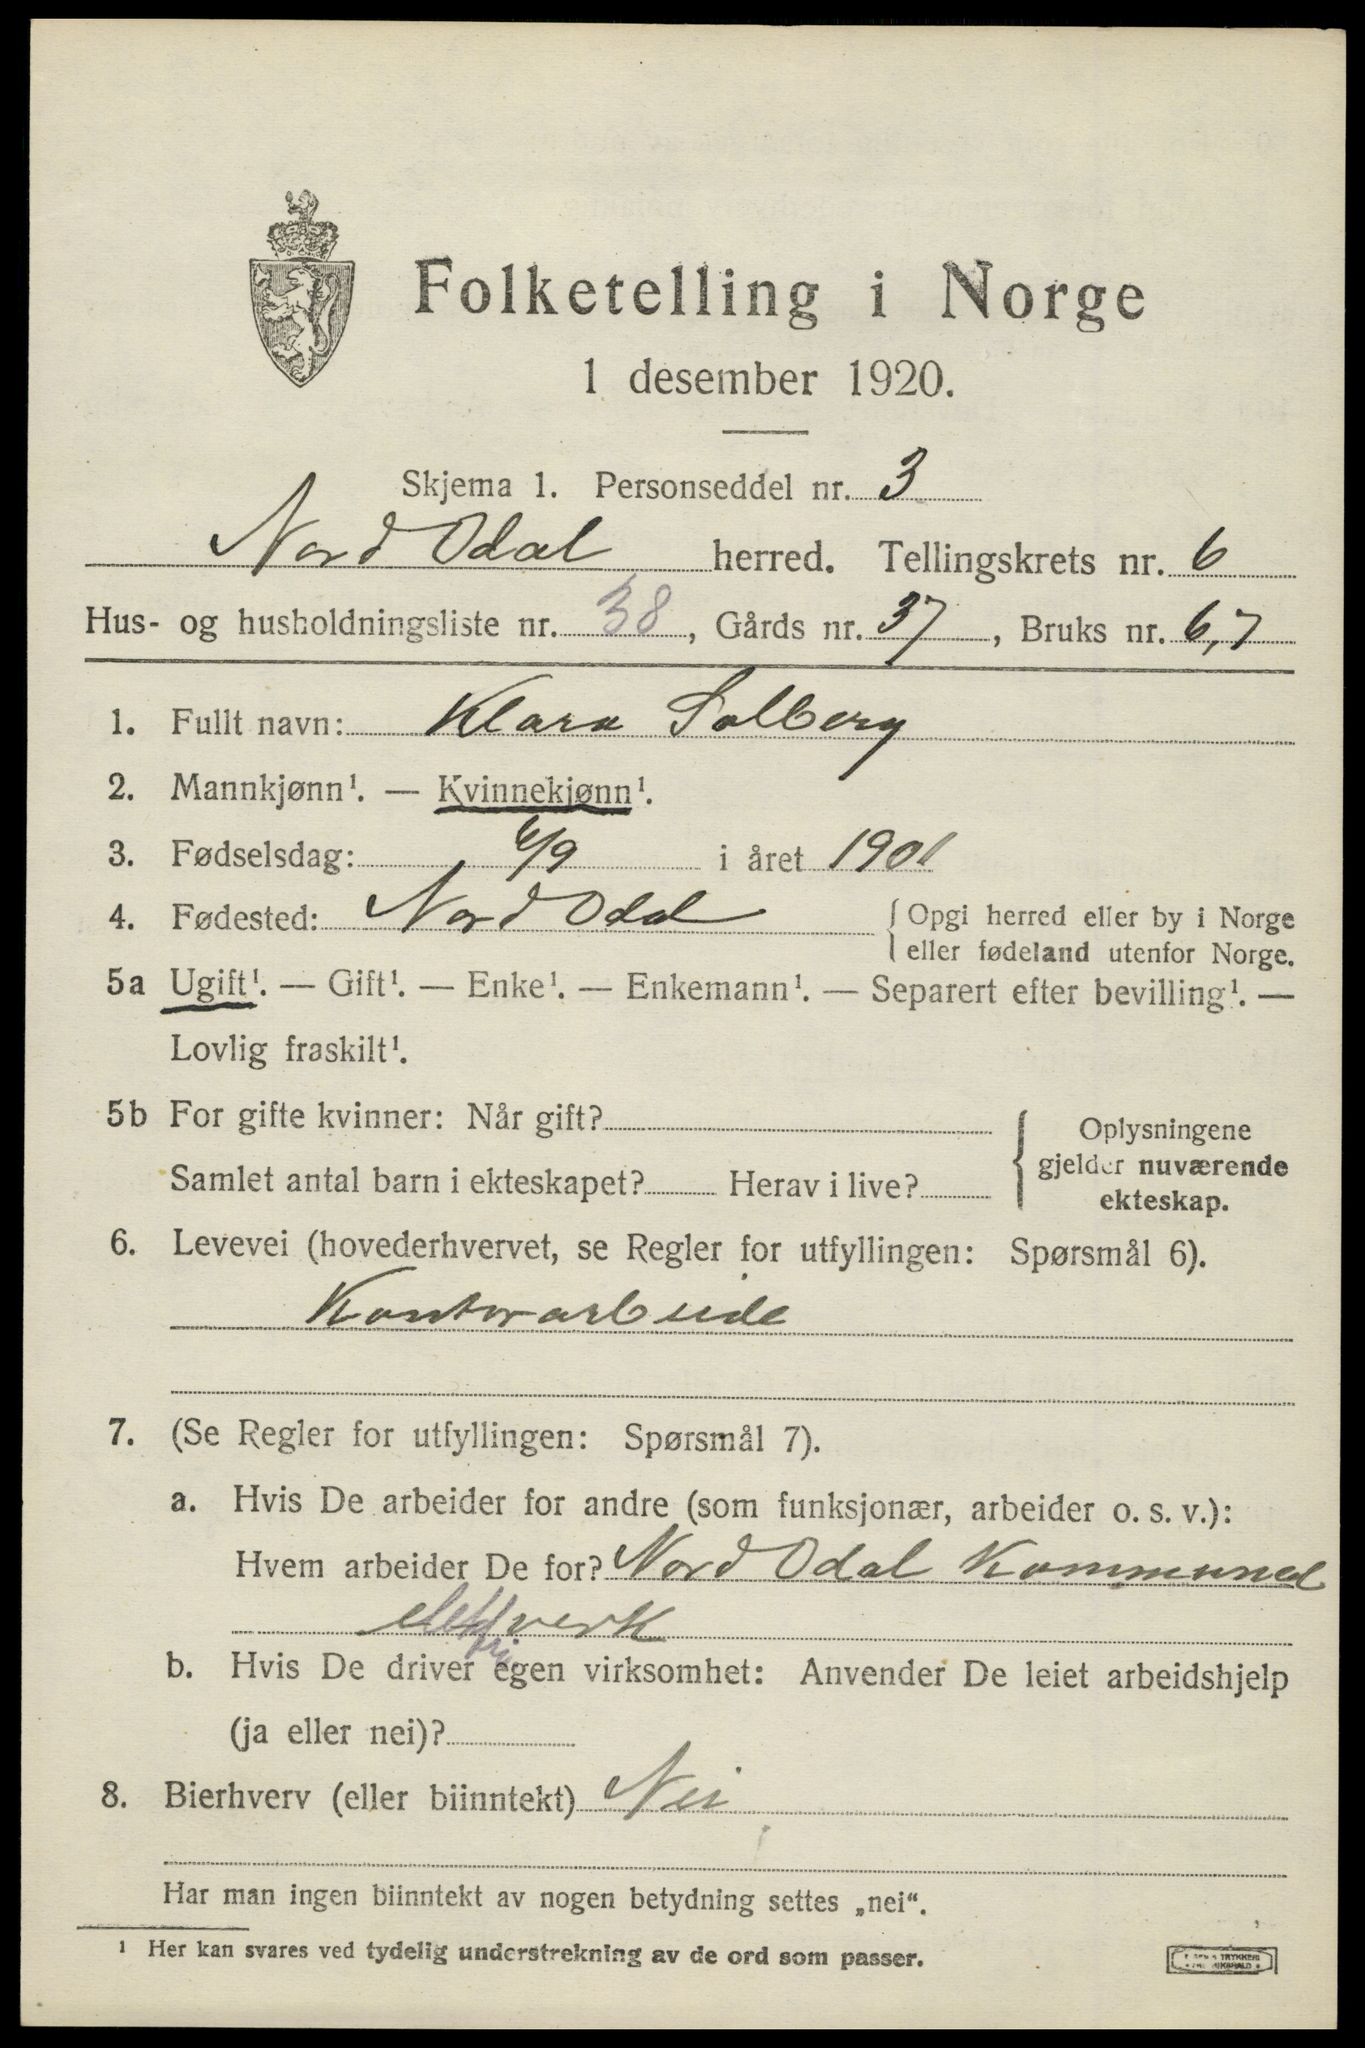 Folketelling i Norge
1 desember 1920.
Skjema 1. Personseddel nr. 3
Nord Odal herred. Tellingskrets nr. 6
Hus- og husholdningsliste nr. 38, Gårds nr. 37, Bruks nr. 6,7
1. Fullt navn: Klara Solberg
2. Mannkjønn¹. — Kvinnekjønn¹.
3. Fødselsdag: 6/9 i året 1901
4. Fødested: Nord Odal {Opgi herred eller by i Norge
eller fødeland utenfor Norge.
5a Ugift¹. — Gift¹. — Enke¹. — Enkemann¹. — Separert efter bevilling¹. —
Lovlig fraskilt¹.
5b For gifte kvinner: Når gift?
Samlet antal barn i ekteskapet? Herav i live?
{Oplysningene
gjelder nuværende
ekteskap.
6. Levevei (hovederhvervet, se Regler for utfyllingen: Spørsmål 6).
Kontorarbeide
7. (Se Regler for utfyllingen: Spørsmål 7).
a. Hvis De arbeider for andre (som funksjonær, arbeider o. s. v.):
Hvem arbeider De for? Nord Odal Kommunes
verk
b. Hvis De driver egen virksomhet: Anvender De leiet arbeidshjelp
(ja eller nei)?
8. Bierhverv (eller biinntekt) Nei
Har man ingen biinntekt av nogen betydning settes „nei“.
¹ Her kan svares ved tydelig understrekning av de ord som passer.